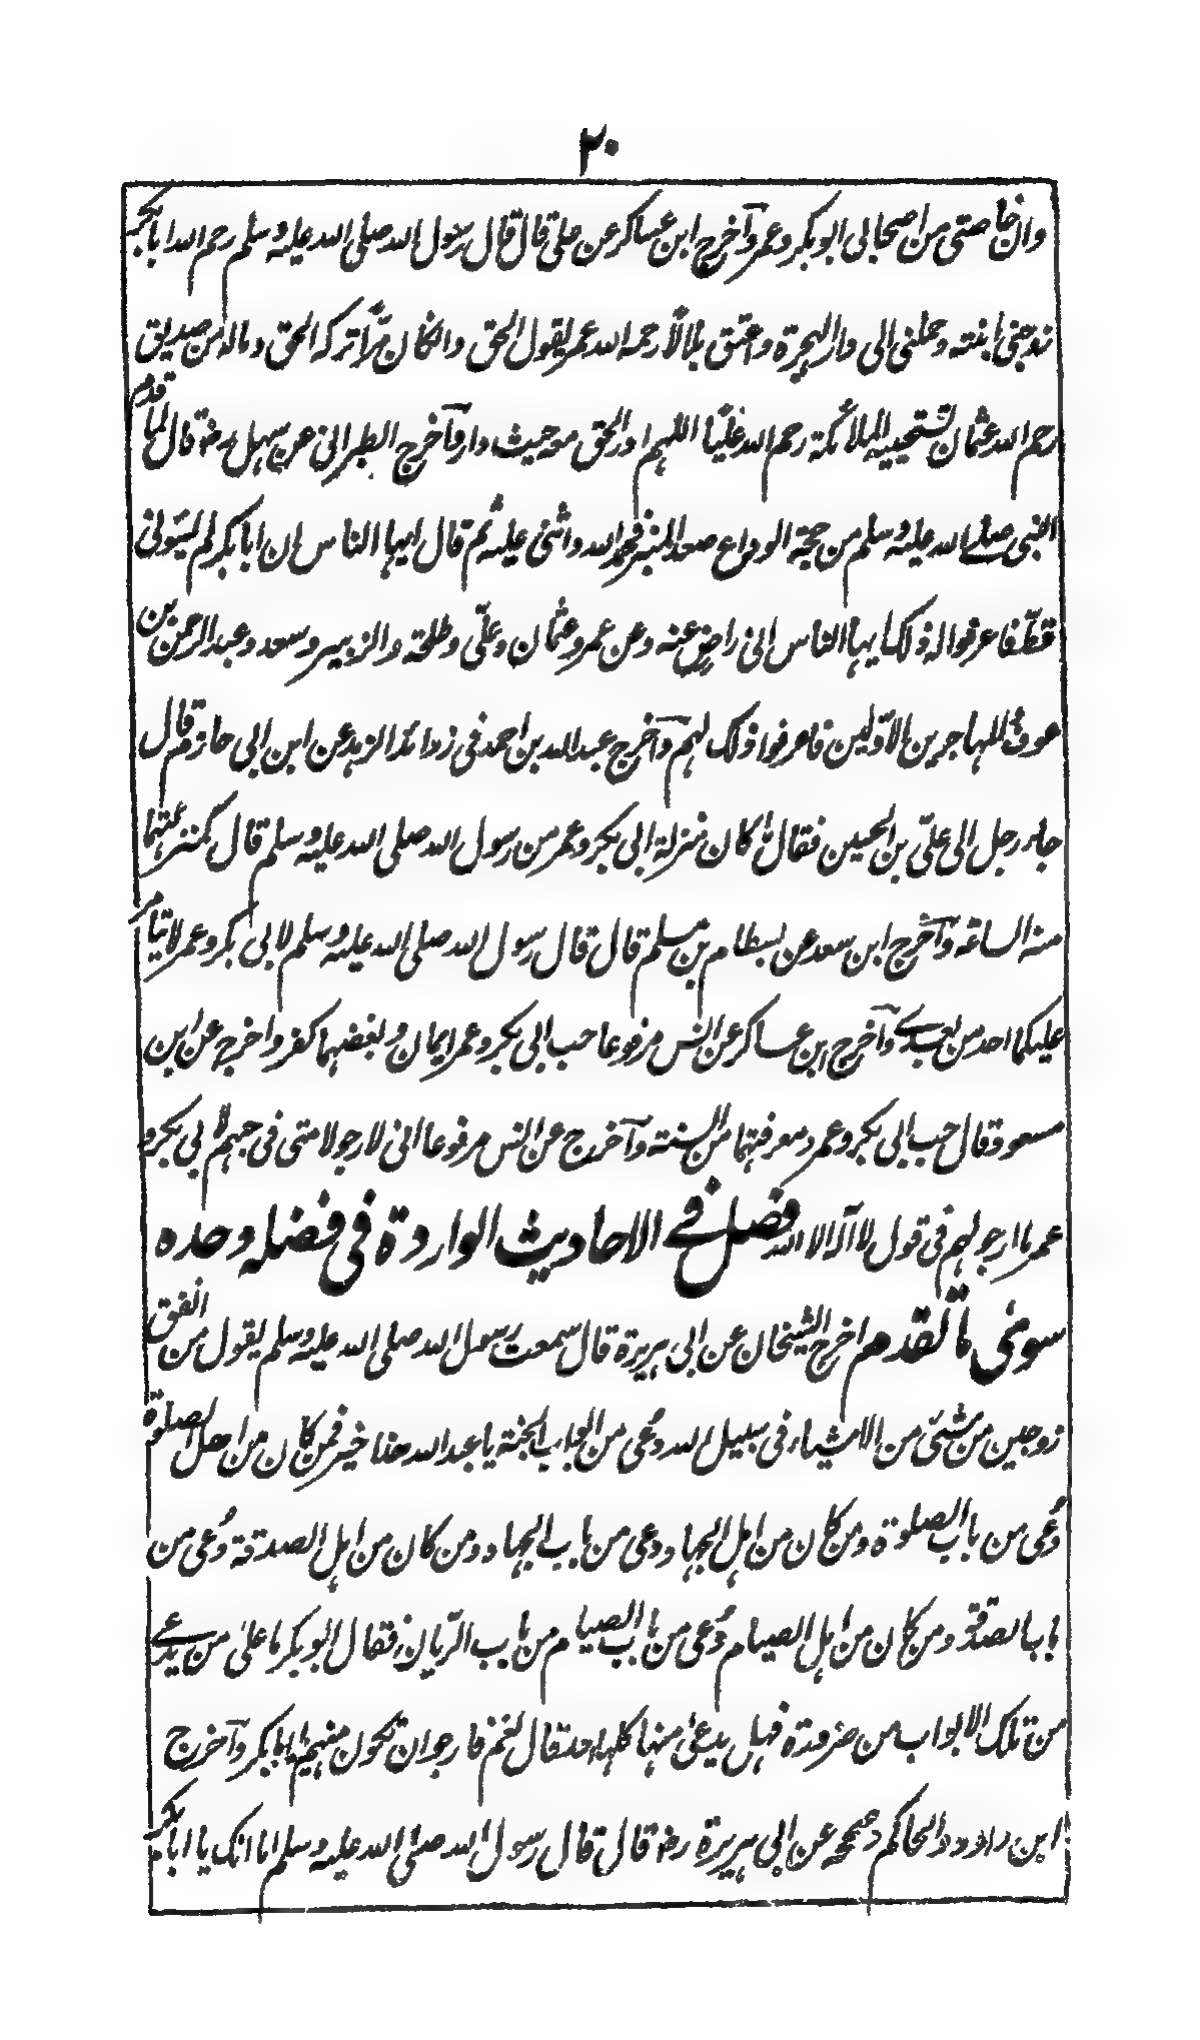 ٢٠
وان خاصتی من اصحابی ابو بکر و عمر وآخرج ابن عساکر عن علی قال قال رسول الله صلی الله علیه وسلم رحم الله ابا بکر
زوجنی ابنته وحملنی الی دار الهجرة واعتق بلالًا رحمه الله عمر یقول الحق وان کان مرًّا ترکه الحق وماله من صدیق
رحم الله عثمان تستحییه الملائکة رحم الله علیًّا اللهم ادر الحق معه حیث دار وآخرج الطبرانی عن سهل رضه قال لما قدم
النبی صلے الله علیه وسلم من حجة الوداع صعد المنبر فحمد الله واثنی علیه ثم قال ایها الناس ان ابا بکر لم یسؤنی
قطّ فاعرفوا له ذلک ایها الناس انی راضٍ عنه وعن عمر وعثمان وعلّی وطلحة والزبیر وسعد وعبد الرحمن بن
عوفٍ والمهاجرین الاوّلین فاعرفوا ذلک لهم وآخرج عبد الله بن احمد فی زوائد الزهد عن ابن ابی حازم قال
جاء رجل الی علیّ بن الحسین فقال ما کان منزلة ابی بکر وعمر من رسول الله صلی الله علیه وسلم قال کمنزلتهما
منه الساعة وآخرج ابن سعد عن بسطام بن مسلم قال قال رسول الله صلی الله علیه وسلم لابی بکر وعمر لا یتامر
علیکما احد من بعدے وآخرج ابن عساکر عن انس مرفوعا حب ابی بکر وعمر ایمان وبغضهما کفر واخرج عن ابن
مسعود قال حب ابی بکر وعمر ومعرفتهما من السنته وآخرج عن انس مرفوعا انی لارجو لامتی فی حبهم لابی بکر و
عمر ما ارجو لهم فی قول لا اله الا الله فصل فے الاحادیث الواردة فی فضله وحده
سوی ما تقدم اخرج الشیخان عن ابی هریرة قال سمعت رسول الله صلی الله علیه وسلم یقول من انفق
زوجین من شئی من الاشیاء فی سبیل الله دُعی من ابواب الجنة یا عبد الله هذا خیر فمن کان من اهل الصلوة
دُعی من باب الصلوة ومن کان من اهل الجهاد دعی من باب الجهاد ومن کان من اهل الصدقة دُعی من
باب الصدقة ومن کان من اهل الصیام دُعی من باب الصیام من باب الرّیان فقال ابو بکر ما علی من یدعے
من تلک الابواب من ضرورة فهل یدعی منها کلها احد قال نعم فارجو ان تکون منهم یا ابا بکر وآخرج
ابن داود والحاکم وصححه عن ابی هریرة رضه قال قال رسول الله صلی الله علیه وسلم اما انک یا ابا بکر